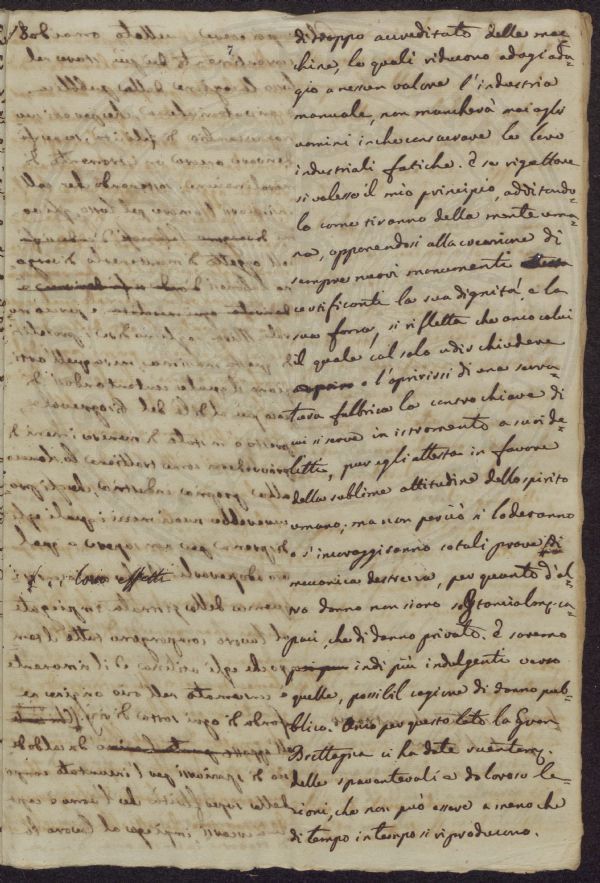 di troppo accreditato delle mac-
chine, le quali riducono adagi ada-
gio a nessun valore l'industria
manuale, non mancherà mai agli
uomini in che conservare le loro
industriali fatiche. E se rigettare
si volesse il mio principio, additando-
lo come tiranno della mente uma-
na, opponendosi alla creazione di
sempre nuovi monumenti
certificanti la sua dignità, e la
sua forza, si rifletta che anco colui
il quale col solo udir schiudere
o l'aprirsi di una serra-
tura fabbrica la contro chiave di
cui si serve in istromento a suoi de-
litti, pur egli attesta in favore
della sublime attitudine dello spirito
umano; ma non perciò si loderanno
o s'incoraggiranno sotali prove di
meccanica destrezza, per quanto d'al-
tro danno non siano ca-
paci, che di danno privato. E saremo
indi più indulgenti verso
quelle, possibil cagione di danno pub-
blico. Anco per questo lato la Gran-
Brettagna ci ha date
delle spaventevoli e dolorose le-
zioni, che non può essere a meno che
di tempo in tempo si riproducano.
loro effetti